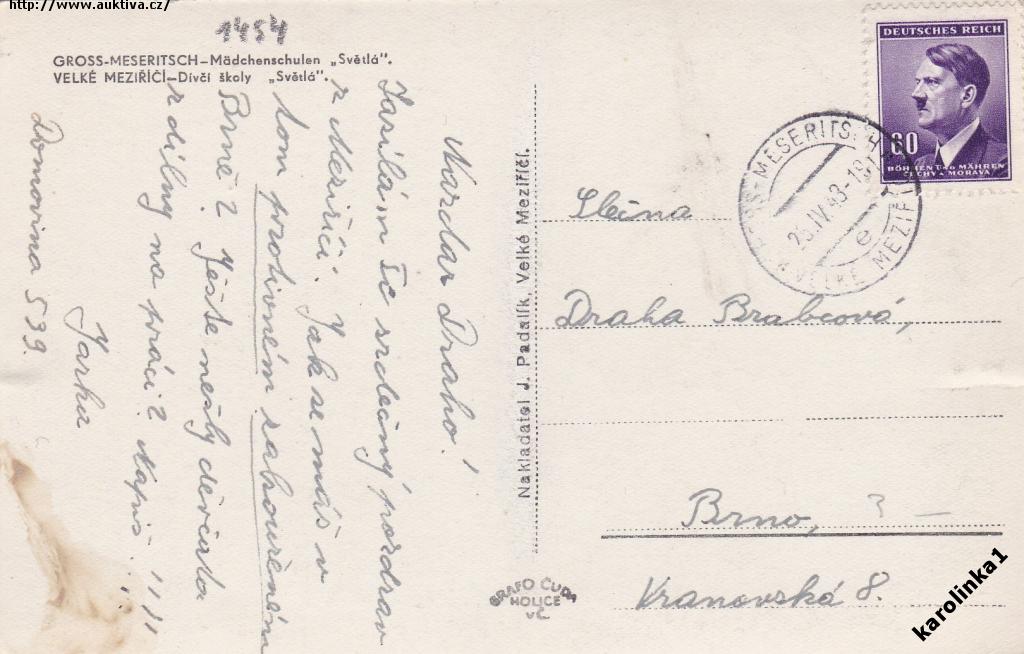 http://www.auktiva.cz/
1454
GROSS-MESERITSCH–Mädchenschulen „Světlá".
VELKÉ MEZIŘÍČÍ–Dívčí školy „Světlá".
Nazdar Draho!
Zasílám Ti srdečný pozdrav
z Meziříčí. Jak se máš v
tom protivném zahouřeném
Brně? Ještě nešly děvčata
z dílny na práci? Napiš.!!!!
Jarka
Domovina 539.
Nakladatel J. Padalík, Velké Meziříčí.
DEUTSCHES REICH
60
BÖHMEN UND MÄHREN
ČECHY A MORAVA
GROSS-MESERITSCH
26.IV.43-18
e
VELKÉ MEZIŘÍČÍ
Slečna
Draha Brabcová,
Brno, 2
Kranovská 8.
GRAFO ČUDA
HOLICE
VČ
karolinka1